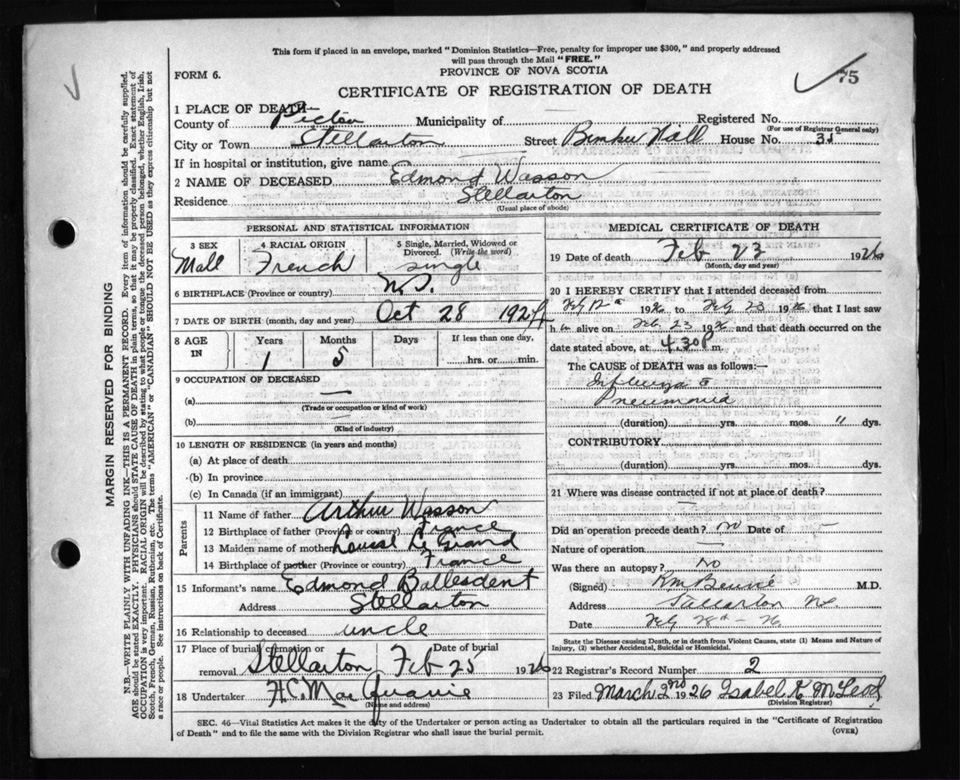 This form if placed in an envelope, marked "Dominion Statistics—Free, penalty for improper use $300," and properly addressed
will pass through the Mail "FREE."
FORM 6.
PROVINCE OF NOVA SCOTIA
75
CERTIFICATE OF REGISTRATION OF DEATH
1 PLACE OF DEATH—
County of Pictou Municipality of Registered No.
(For use of Registrar General only)
City or Town Stellarton Street Hill House No. 31
If in hospital or institution, give name
2 NAME OF DECEASED Edmond Wasson
Residence Stellarton
(Usual place of abode)
PERSONAL AND STATISTICAL INFORMATION
3 SEX 4 RACIAL ORIGIN 5 Single, Married, Widowed or
Divorced. (Write the word)
Mall French single
6 BIRTHPLACE (Province or country) N.S.
7 DATE OF BIRTH (month, day and year) Oct 28 1924
8 AGE IN Years Months Days If less than one day,
1 5 hrs. or min.
9 OCCUPATION OF DECEASED
(a) —
(Trade or occupation or kind of work)
(b)
(Kind of industry)
10 LENGTH OF RESIDENCE (in years and months)
(a) At place of death
(b) In province
(c) In Canada (if an immigrant)
Parents
11 Name of father Arthur Wasson
12 Birthplace of father (Province or country) France
13 Maiden name of mother Le Grand
14 Birthplace of mother (Province or country) France
15 Informant's name Edmond Ballesdent
Address Stellarton
16 Relationship to deceased uncle
17 Place of burial, cremation or Date of burial
removal Stellarton Feb 25 1926
18 Undertaker H.C. MacQuarrie
(Name and address)
MEDICAL CERTIFICATE OF DEATH
19 Date of death Feb 23 1926
(Month, day and year)
20 I HEREBY CERTIFY that I attended deceased from
1926 to Feby 23 1926 that I last saw
h im alive on Feb 23 1926 and that death occurred on the
date stated above, at 4.30 P m.
The CAUSE of DEATH was as follows:—
Influenza &
Pneumonia
(duration) yrs. mos. 11 dys.
CONTRIBUTORY
(duration) yrs. mos. dys.
21 Where was disease contracted if not at place of death?
—
Did an operation precede death? no Date of —
Nature of operation —
Was there an autopsy? No
(Signed) M.D.
Address Stellarton NS
Date Feby 28th - 26
State the Disease causing Death, or in death from Violent Causes, state (1) Means and Nature of
Injury, (2) whether Accidental, Suicidal or Homicidal.
22 Registrar's Record Number 2
23 Filed March 2nd 1926 Isabel K McLeod
(Division Registrar)
SEC. 46—Vital Statistics Act makes it the duty of the Undertaker or person acting as Undertaker to obtain all the particulars required in the "Certificate of Registration
of Death" and to file the same with the Division Registrar who shall issue the burial permit.
(OVER)
MARGIN RESERVED FOR BINDING
N.B.—WRITE PLAINLY WITH UNFADING INK—THIS IS A PERMANENT RECORD. Every item of information should be carefully supplied.
AGE should be stated EXACTLY. PHYSICIANS should STATE CAUSE OF DEATH in plain terms, so that it may be properly classified. Exact statement of
OCCUPATION is very important. RACIAL ORIGIN will be described by stating to what people or tongue the deceased person belonged, whether English, Irish,
Scotch, French, German, Russian, Ruthenian, etc. The terms "AMERICAN" or "CANADIAN" SHOULD NOT BE USED as they express citizenship but not
a race or people. See instructions on back of Certificate.